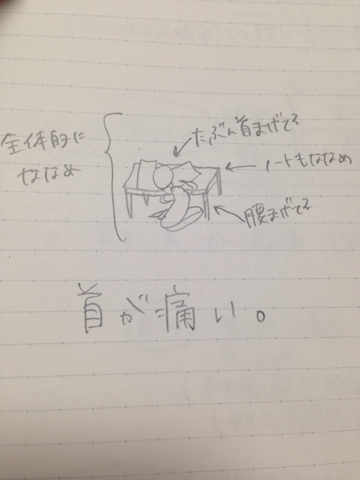 全体的に
ななめ
たぶん首まげてる
ノートもななめ
腰まげてる
首が痛い。